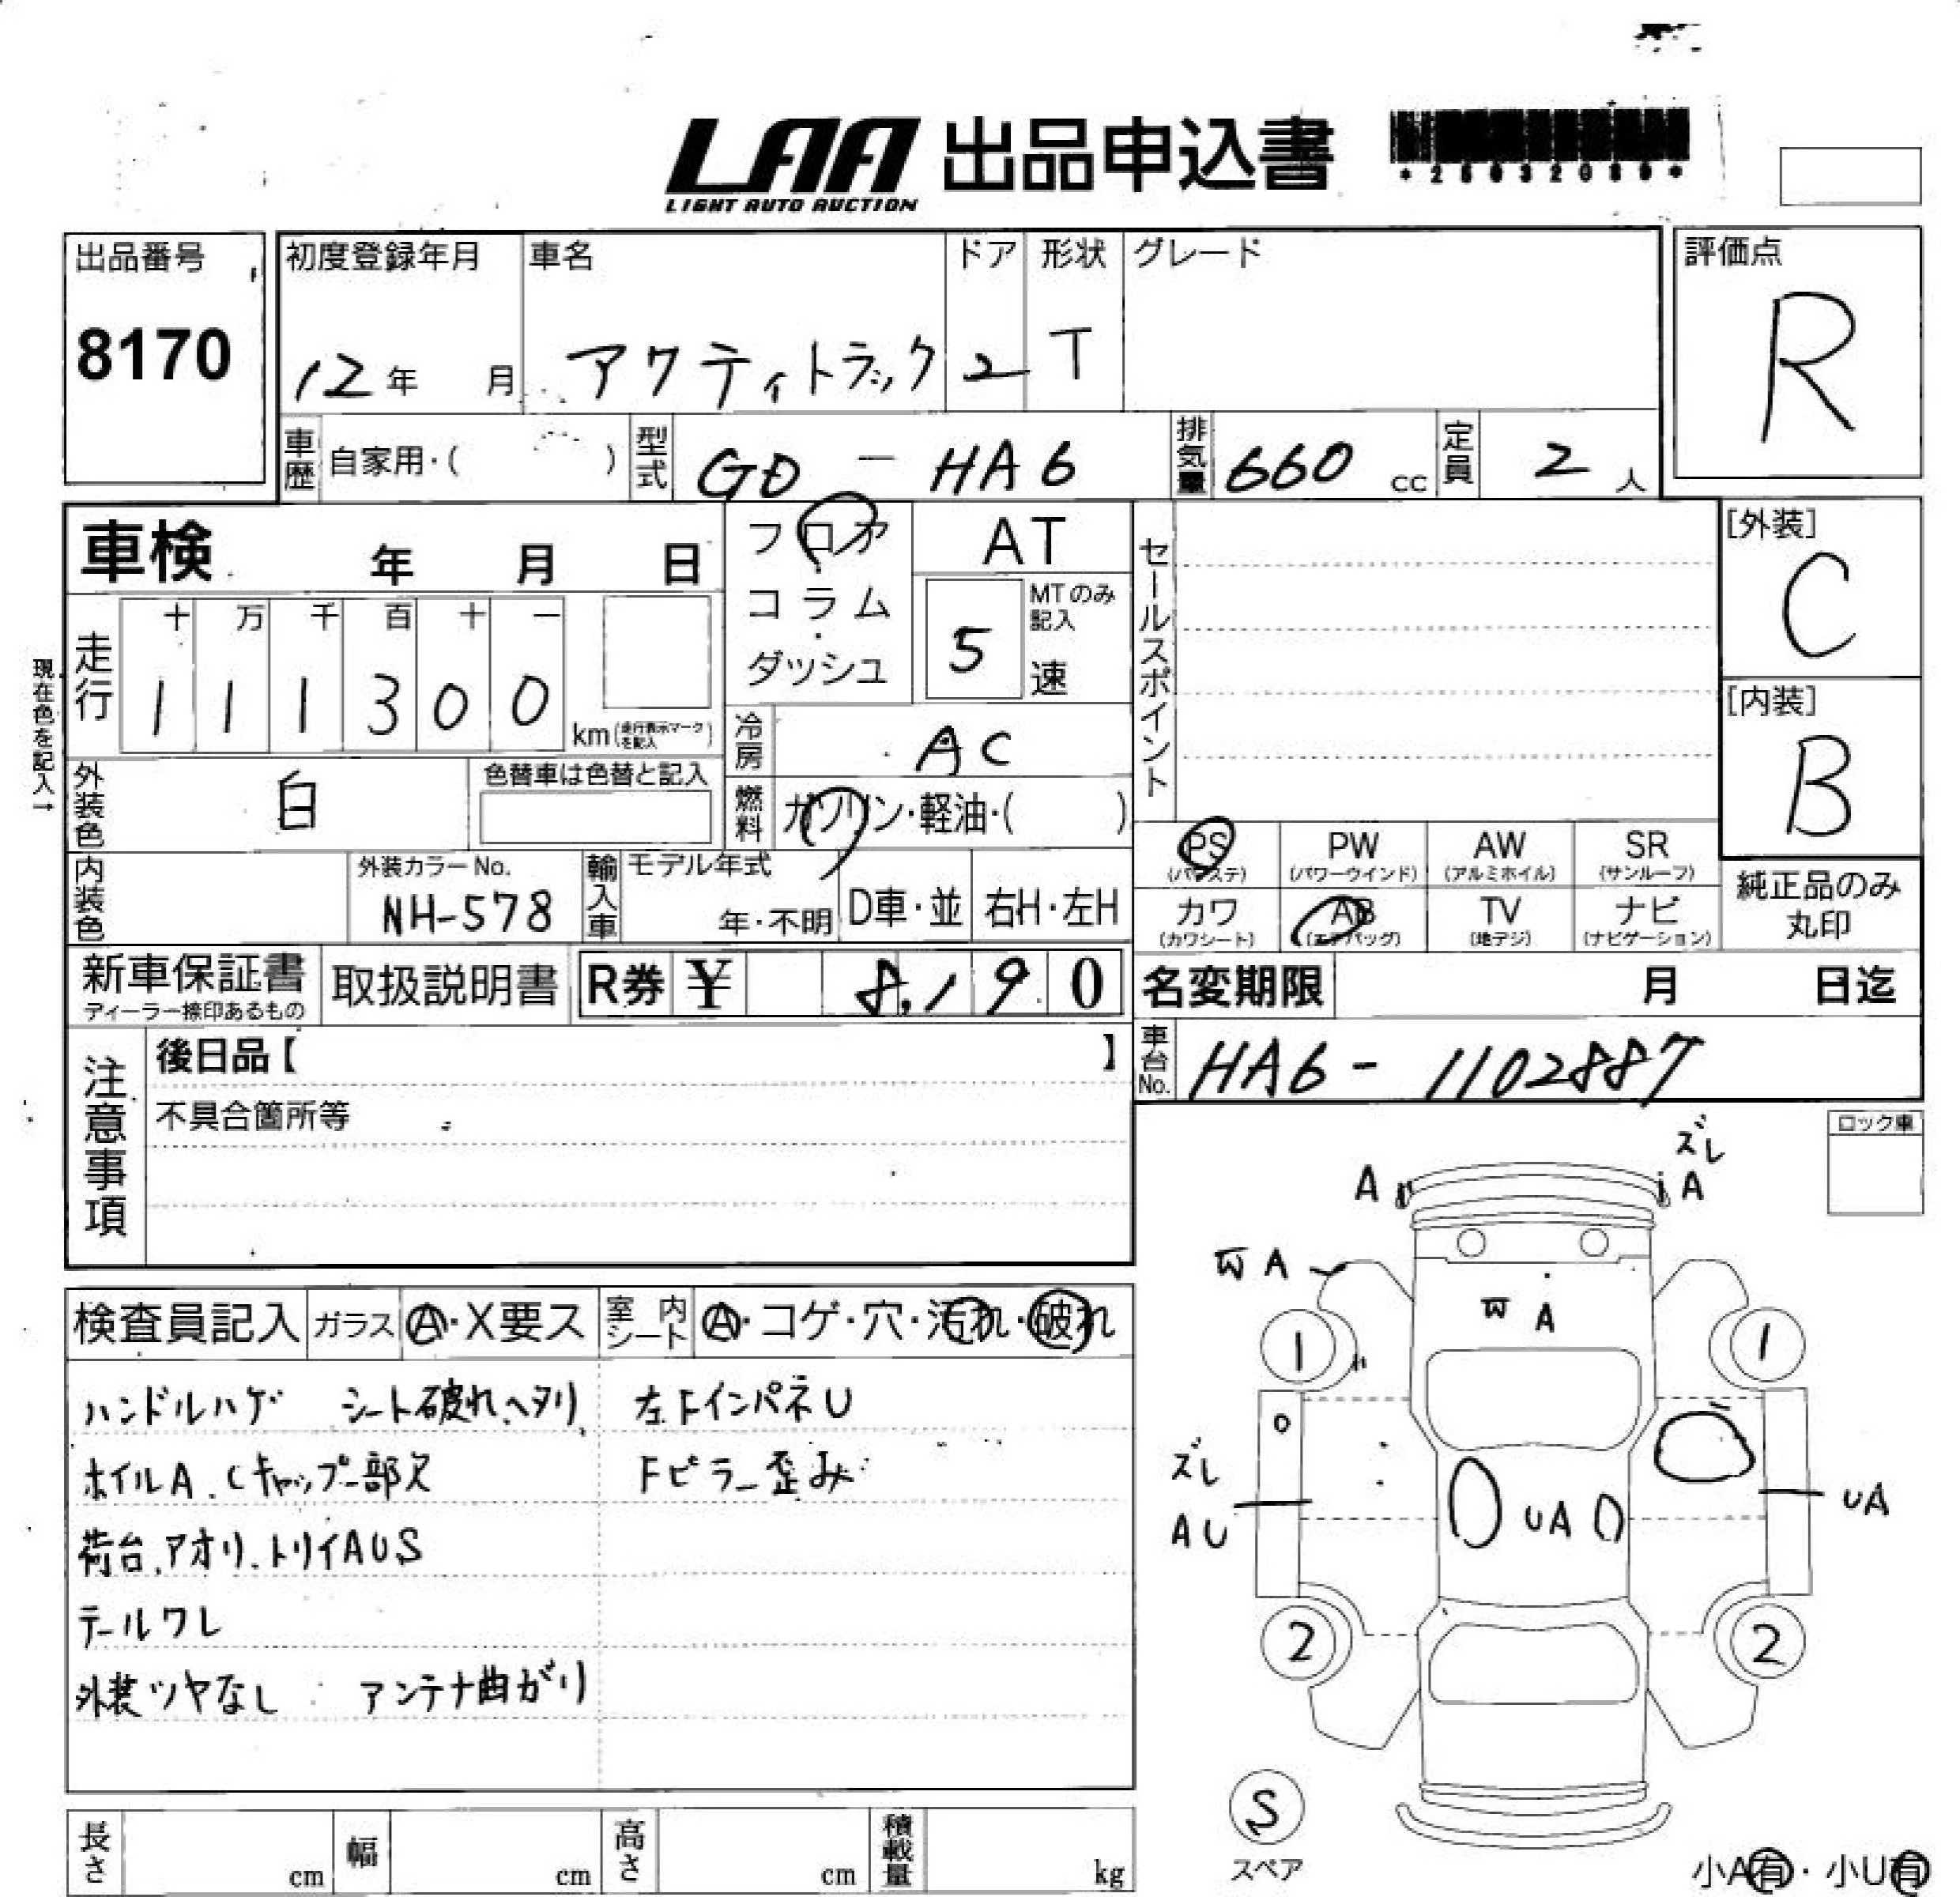 LAA 出品申込書
LIGHT AUTO AUCTION
出品番号
8170
初度登録年月
12年 月
車名
アクティトラック
ドア
2
形状
T
グレード
評価点
R
車歴 自家用・( )
型式 GD - HA6
排気量 660 cc
定員 2 人
車検 年 月 日
フロア・コラム・ダッシュ
AT
5 速 MTのみ記入
セールスポイント
[外装]
C
[内装]
B
現在色を記入→
走行
十 万 千 百 十 一
1 1 1 3 0 0
km(走行表示マークを記入)
冷房 AC
外装色 白
色替車は色替と記入
燃料 ガソリン・軽油・( )
内装色
外装カラーNo.
NH-578
輸入車
モデル年式
年・不明
D車・並
右H・左H
PS (パワステ)
PW (パワーウインド)
AW (アルミホイル)
SR (サンルーフ)
カワ (カワシート)
AB (エアバッグ)
TV (地デジ)
ナビ (ナビゲーション)
純正品のみ丸印
新車保証書
ディーラー捺印あるもの
取扱説明書
R券 ¥ 8,190
名変期限 月 日迄
注意事項
後日品【 】
不具合箇所等
車台No. HA6-1102887
ロック車
検査員記入
ガラス A・X要ス
室内シート A・コゲ・穴・汚れ・破れ
ハンドルハゲ シート破れ、ヘタリ 左FインパネU
ホイルA. Cキャップ一部欠 Fピラー歪み
荷台、アオリ、トリイAUS
テールワレ
外装ツヤなし アンテナ曲がり
ズレ
A A
W A
W A
1 1
ズレ
AU
UA
UA
2 2
S
スペア
小A有・小U有
長さ cm
幅 cm
高さ cm
積載量 kg